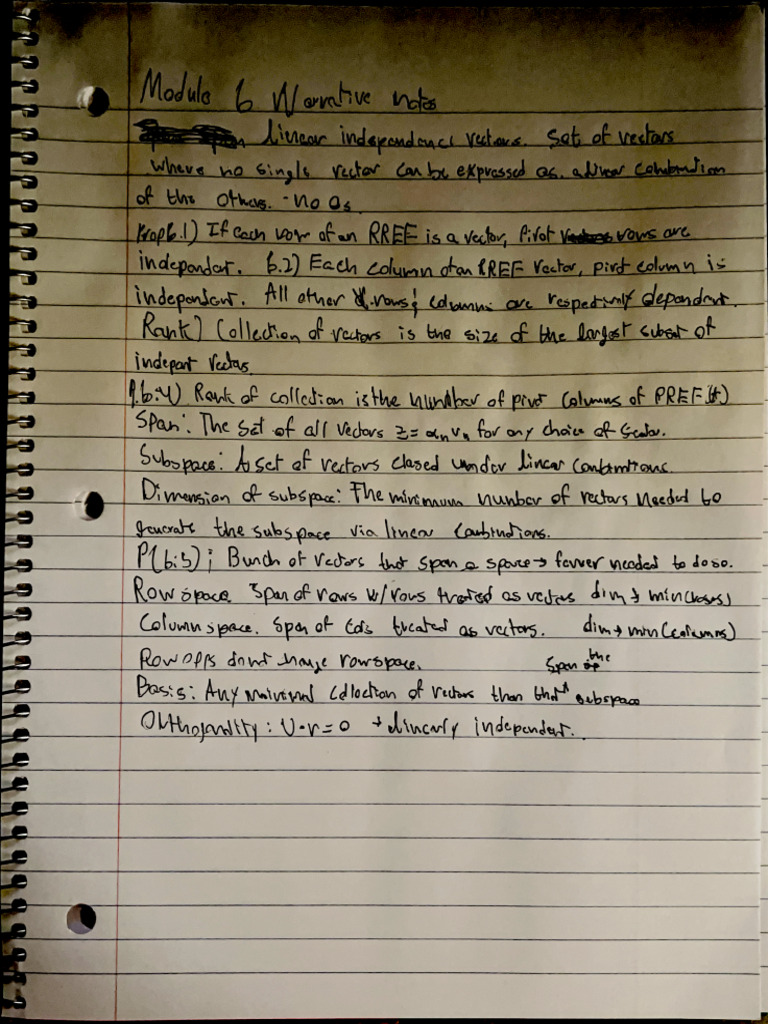 Module 6 Narrative notes
linear independence vectors. Set of vectors
where no single vector can be expressed as a linear combination
of the others. - no 0s
Prop 6.1) If each row of an RREF is a vector, pivot rows are
independent. 6.2) Each column of an RREF vector, pivot column is
independent. All other rows & columns are respectively dependent.
Rank) Collection of vectors is the size of the largest subset of
indepent vectors.
P.6.4) Rank of collection is the number of pivot columns of RREF(A)
Span: The set of all vectors z = αnvn for any choice of scalar.
Subspace: A set of vectors closed under linear combinations.
Dimension of subspace: The minimum number of vectors needed to
generate the subspace via linear combinations.
P(6.5); Bunch of vectors that span a space → fewer needed to do so.
Row space. Span of rows w/ rows treated as vectors dim → min(rows)
Column space. Span of cols treated as vectors. dim → min(columns)
Row opps dont change rowspace. span of the
Basis: Any minimal collection of vectors than that subspace
Orthogonality: U·v=0 → linearly independent.